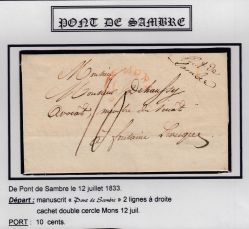 PONT DE SAMBRE
Pont de
Sambre
Monsieur
Monsieur
Avocat membre du
De Pont de Sambre le 12 juillet 1833.
Départ : manuscrit « Pont de Sambre » 2 lignes à droite
cachet double cercle Mons 12 juil.
PORT : 10 cents.